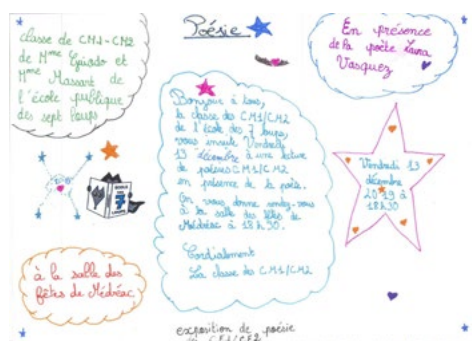 Poésie
classe de CM1-CM2
de Mme Guiado et
Mme Massart de
l'école publique
des sept loups
En présence
de la poète Luna
Vasquez
Bonjour à tous,
la classe des CM1/CM2
de l'école des 7 loups,
vous invite Vendredi
13 décembre à une lecture
de poésies CM1/CM2
en présence de la poète.
On vous donne rendez-vous
à la salle des fêtes de
Médréac à 18 h 30.
Cordialement
La classe des CM1/CM2
Vendredi 13
décembre
2019 à
18h30
à la salle des
fêtes de Médréac
exposition de poésie
CE1/CE2